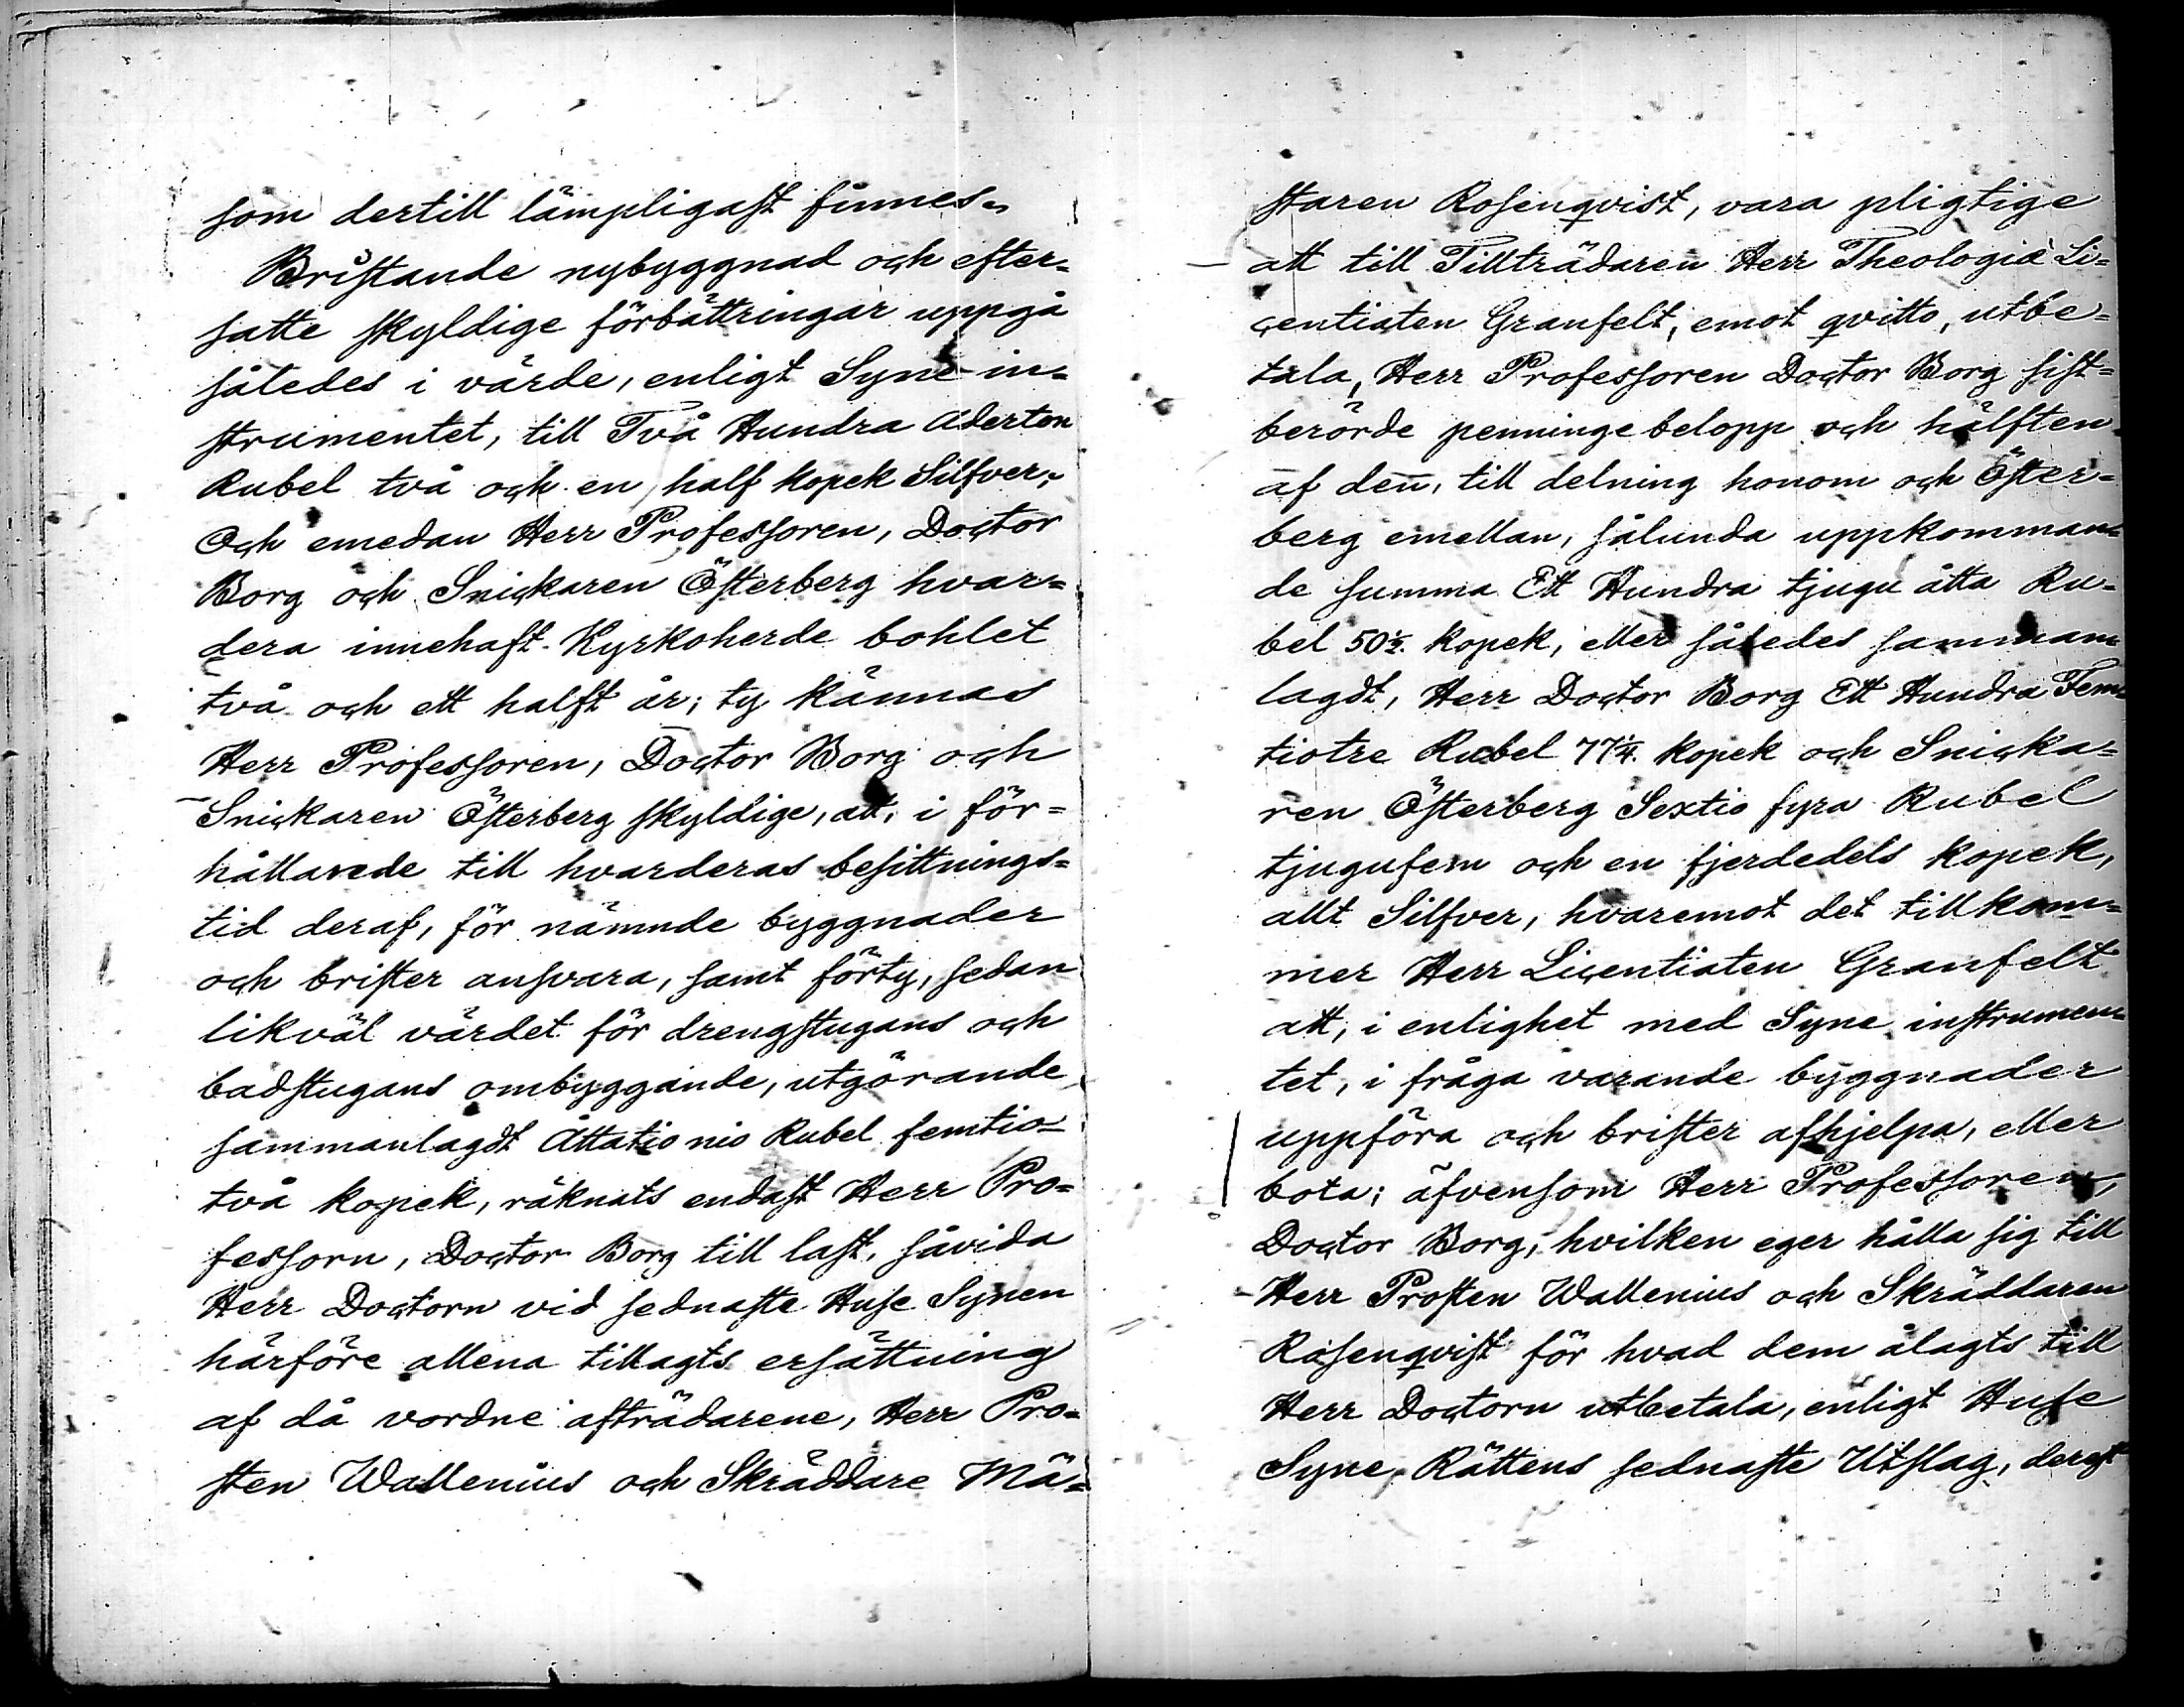 som dertill lämpligast finnes.
Bristande nybyggnad och efter=
satte skyldige förbättringar uppgå
således i värde, enligt Syne in=
strumentet, till Två Hundra Aderton
Rubel två och en half kopek Silfver,
Och emedan Herr Professoren, Doctor
Borg och Snickaren Österberg hvar=
dera innehaft Kyrkoherde bohlet
två och ett halft år; ty kännas
Herr Professoren, Doctor Borg och
Snickaren Österberg skyldige, att, i för=
hållande till hvarderas besittnings=
tid deraf, för nämnde byggnader
och brister ansvara, samt förty, sedan
likväl värdet för drengstugans och
badstugans ombyggande, utgörande
sammanlagdt Åttatio nio Rubel femtio
två kopek, räknats endast Herr Pro=
fessorn, Doctor Borg till last, såvida
Herr Doctorn vid sednaste Huse Synen
härföre allena tillagts ersättning
af då vordne afträdarene, Herr Pro=
sten Wallenius och Skräddare Mä=
staren Rosenqvist, vara pligtige
att till Tillträdaren Herr Theologiæ Li=
centiaten Granfelt, emot qvitto, utbe=
tala, Herr Professoren Doctor Borg sist=
berörde penninge belopp och hälften
af den, till delning honom och Öster=
berg emellan, sålunda uppkomman=
de summa Ett Hundra tjugu åtta Ru=
bel 50½. kopek, eller således samman=
lagdt, Herr Doctor Borg Ett Hundra Fem=
tiotre Rubel 77¼. kopek och Snicka=
ren Österberg Sextio fyra Rubel
tjugufem och en fjerdedels kopek,
allt Silfver, hvaremot det tillkom=
mer Herr Licentiaten Granfelt
att, i enlighet med Syne instrumen=
tet, i fråga varande byggnader
uppföra och brister afhjelpa, eller
bota; äfvensom Herr Professoren,
Doctor Borg, hvilken eger hålla sig till
Herr Prosten Wallenius och Skräddaren
Rosenqvist för hvad dem ålagts till
Herr Doctorn utbetala, enligt Huse
Syne Rättens sednaste Utslag, derest